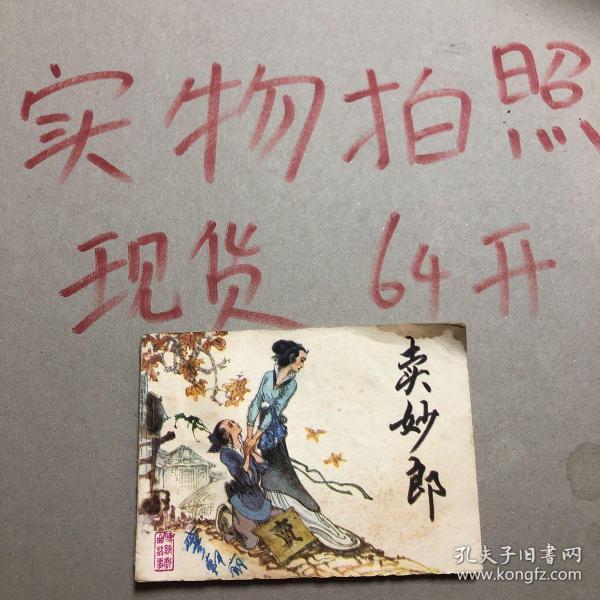 实物拍照
现货 64开
卖妙郎
賣
孔夫子旧书网
www.kongfz.com